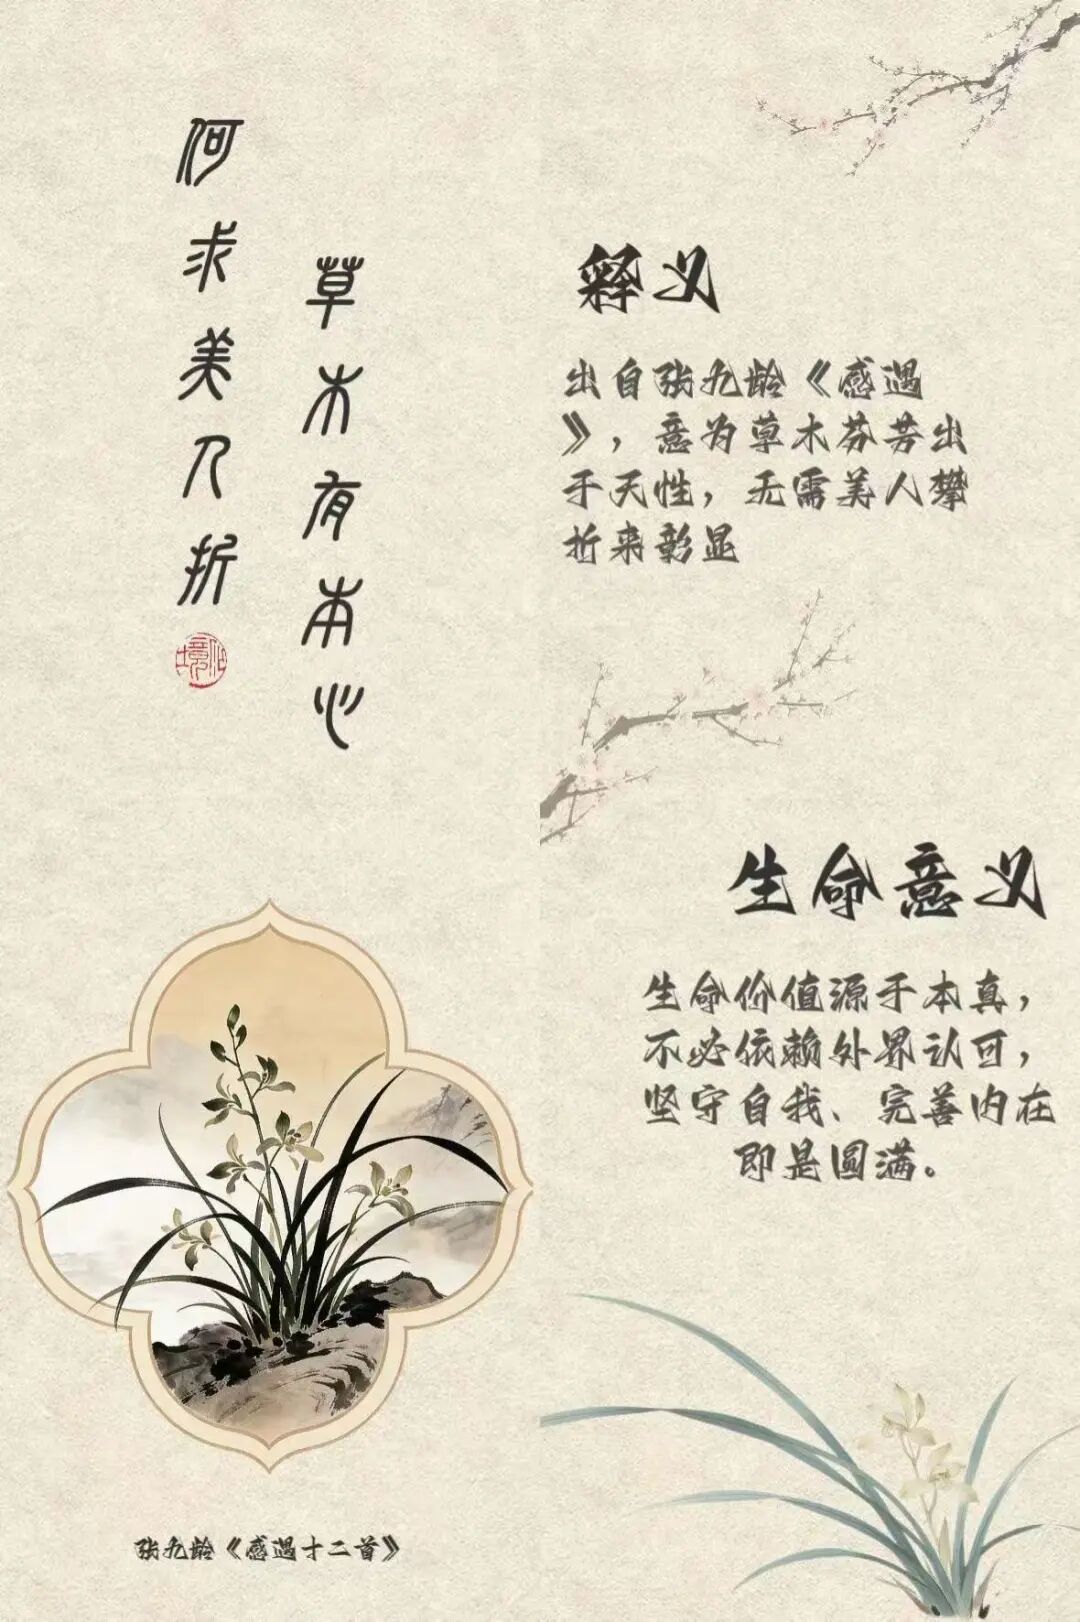 草木有本心
何求美人折
张九龄《感遇十二首》
释义
出自张九龄《感遇
》，意为草木芬芳出
于天性，无需美人攀
折来彰显
生命意义
生命价值源于本真，
不必依赖外界认可，
坚守自我、完善内在
即是圆满。